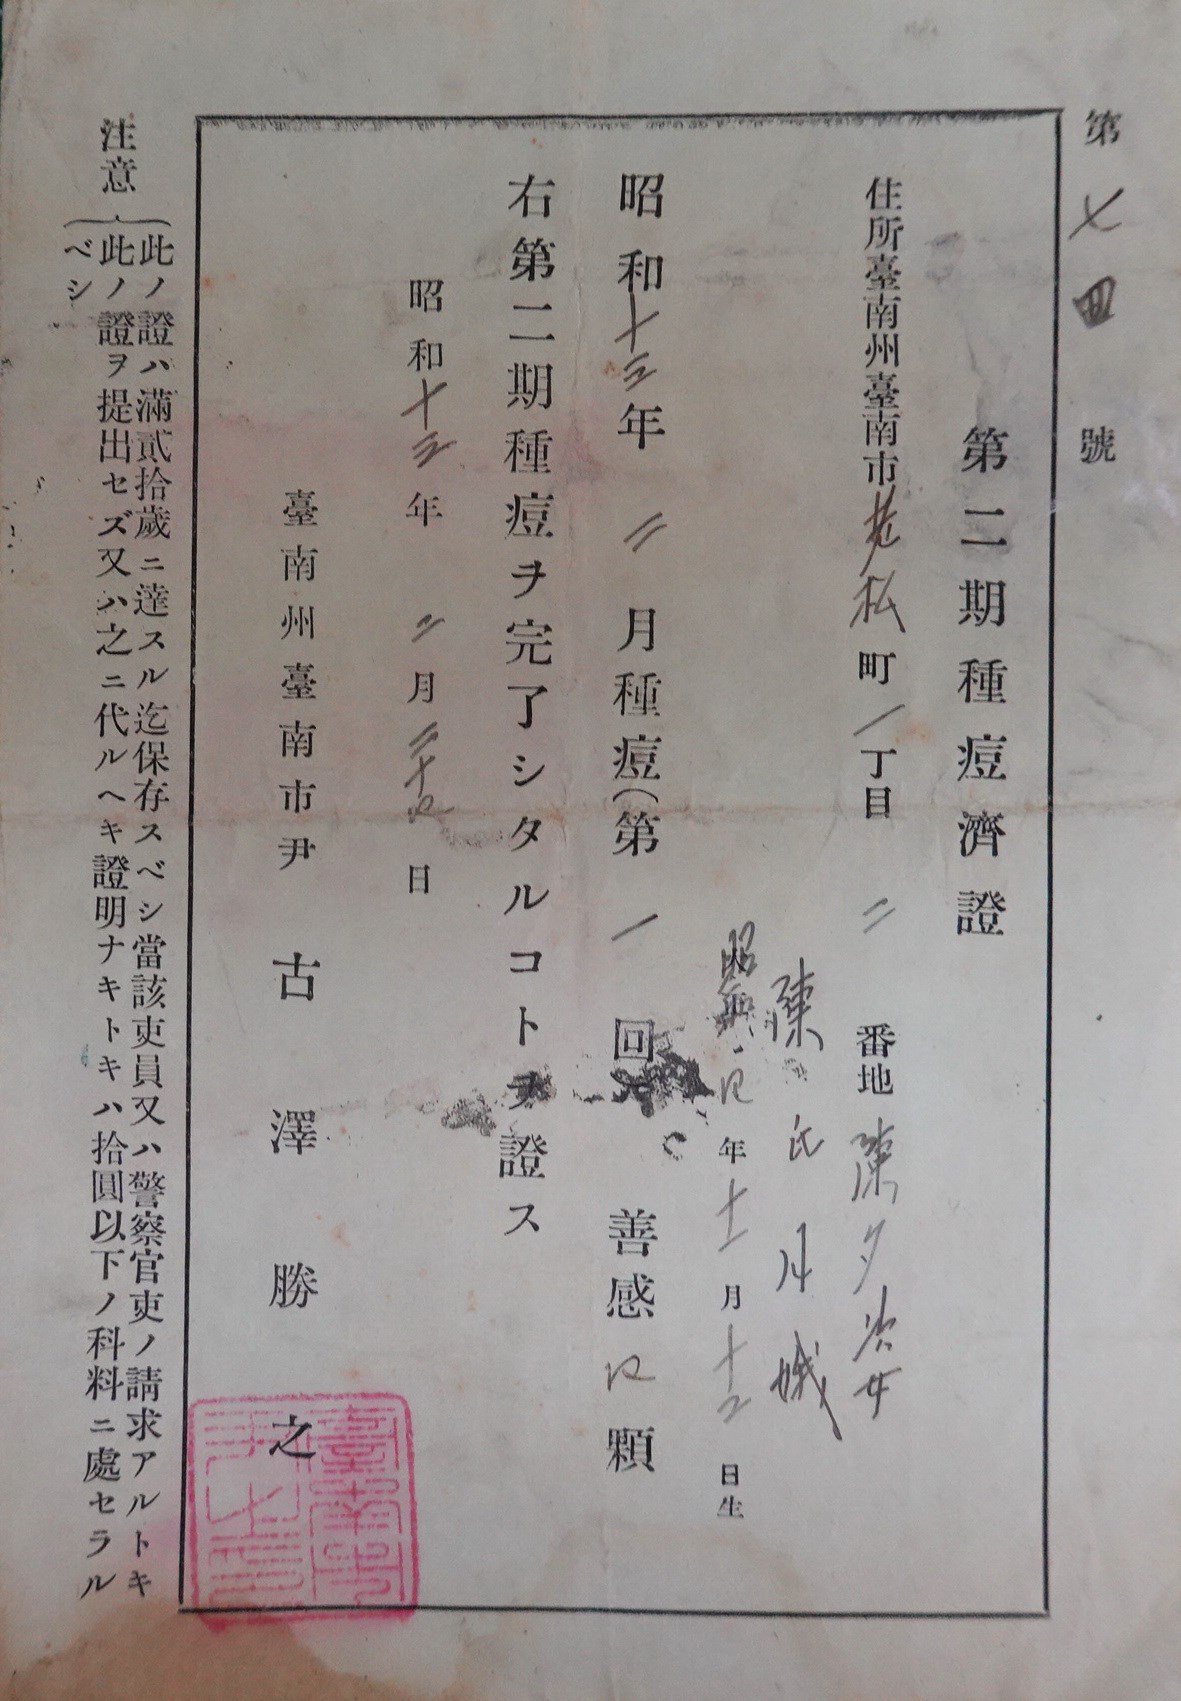 第七四號
第二期種痘濟證
住所臺南州臺南市老松町一丁目二番地陳
陳氏月娥
昭和 年十一月十二日生
昭和十三年二月種痘(第一回 善感 顆
右第二期種痘ヲ完了シタルコトヲ證ス
昭和十三年二月二十四日
臺南州臺南市尹 古澤勝之
注意
此ノ證ハ滿貳拾歲ニ達スル迄保存スベシ當該吏員又ハ警察官吏ノ請求アルトキ
此ノ證ヲ提出セズ又ハ之ニ代ルヘキ證明ナキトキハ拾圓以下ノ科料ニ處セラル
ベシ